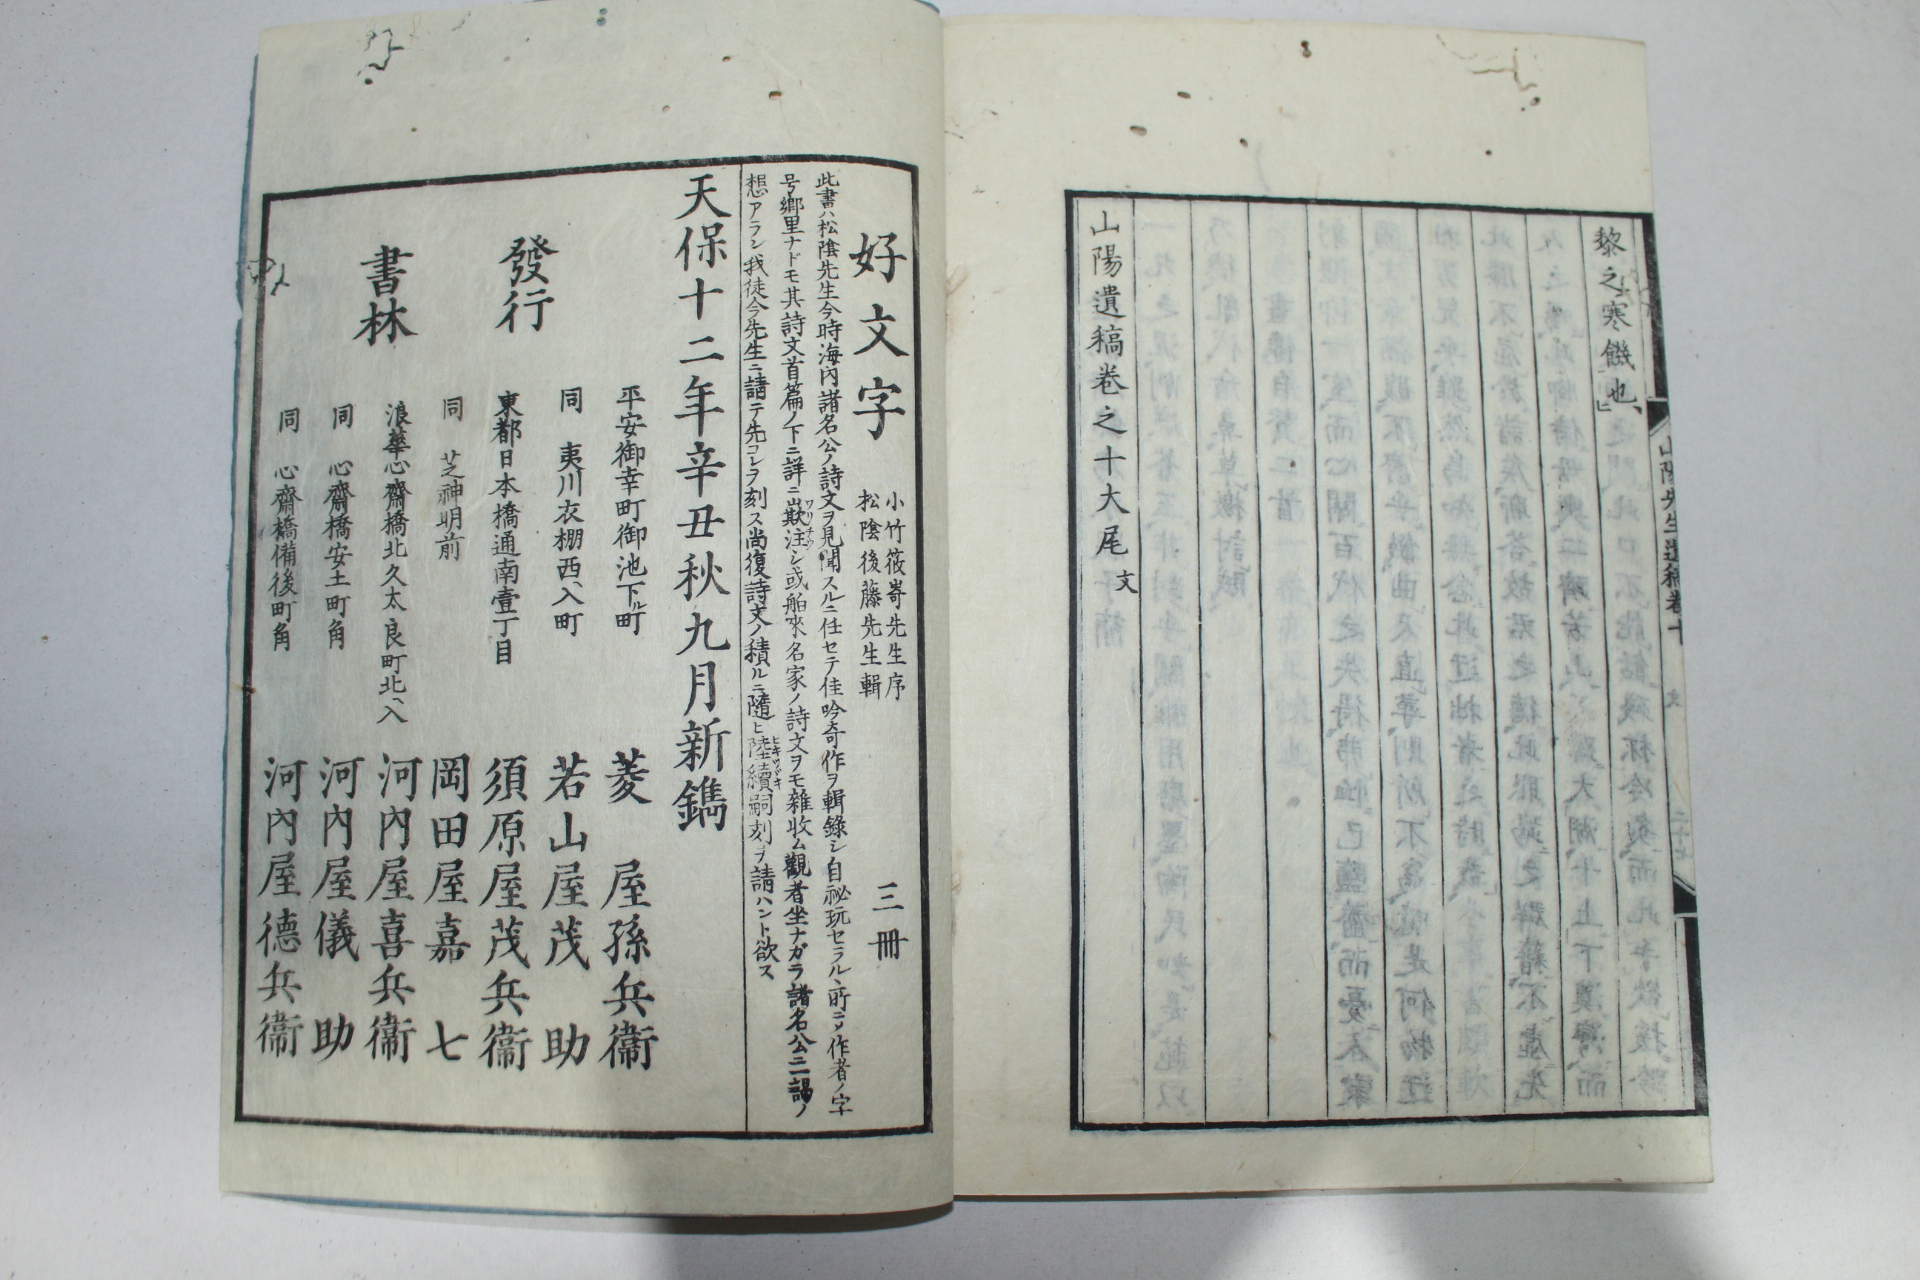 黎之寒饑也
山陽遺稿卷之十大尾 文
山陽先生遺稿卷十 文 二十七
好文字 小竹筱嵜先生序 三冊
松陰後藤先生輯
此書ハ松陰先生今時海內諸名公ノ詩文ヲ見聞スルニ任セテ佳吟奇作ヲ輯錄シ自祕玩セラルヽ所ニテ作者ノ字
号鄉里ナドモ其詩文首篇ノ下ニ詳ニ出歟注シ或舶來名家ノ詩文ヲモ雜收ム觀者坐ナガラ諸名公ニ謁ノ
想アラン我徒今先生ニ請テ先コレヲ刻ス尚復詩文ノ積ルニ隨ヒ陸續嗣刻ヲ請ハント欲ス
天保十二年辛丑秋九月新鐫
發行
書林
平安御幸町御池下ル町 菱屋孫兵衞
同 夷川衣棚西ヘ入町 若山屋茂助
東都日本橋通南壹丁目 須原屋茂兵衞
同 芝神明前 岡田屋嘉七
浪華心齋橋北久太良町北ヘ入 河內屋喜兵衞
同 心齋橋安土町角 河內屋儀助
同 心齋橋備後町角 河內屋德兵衞